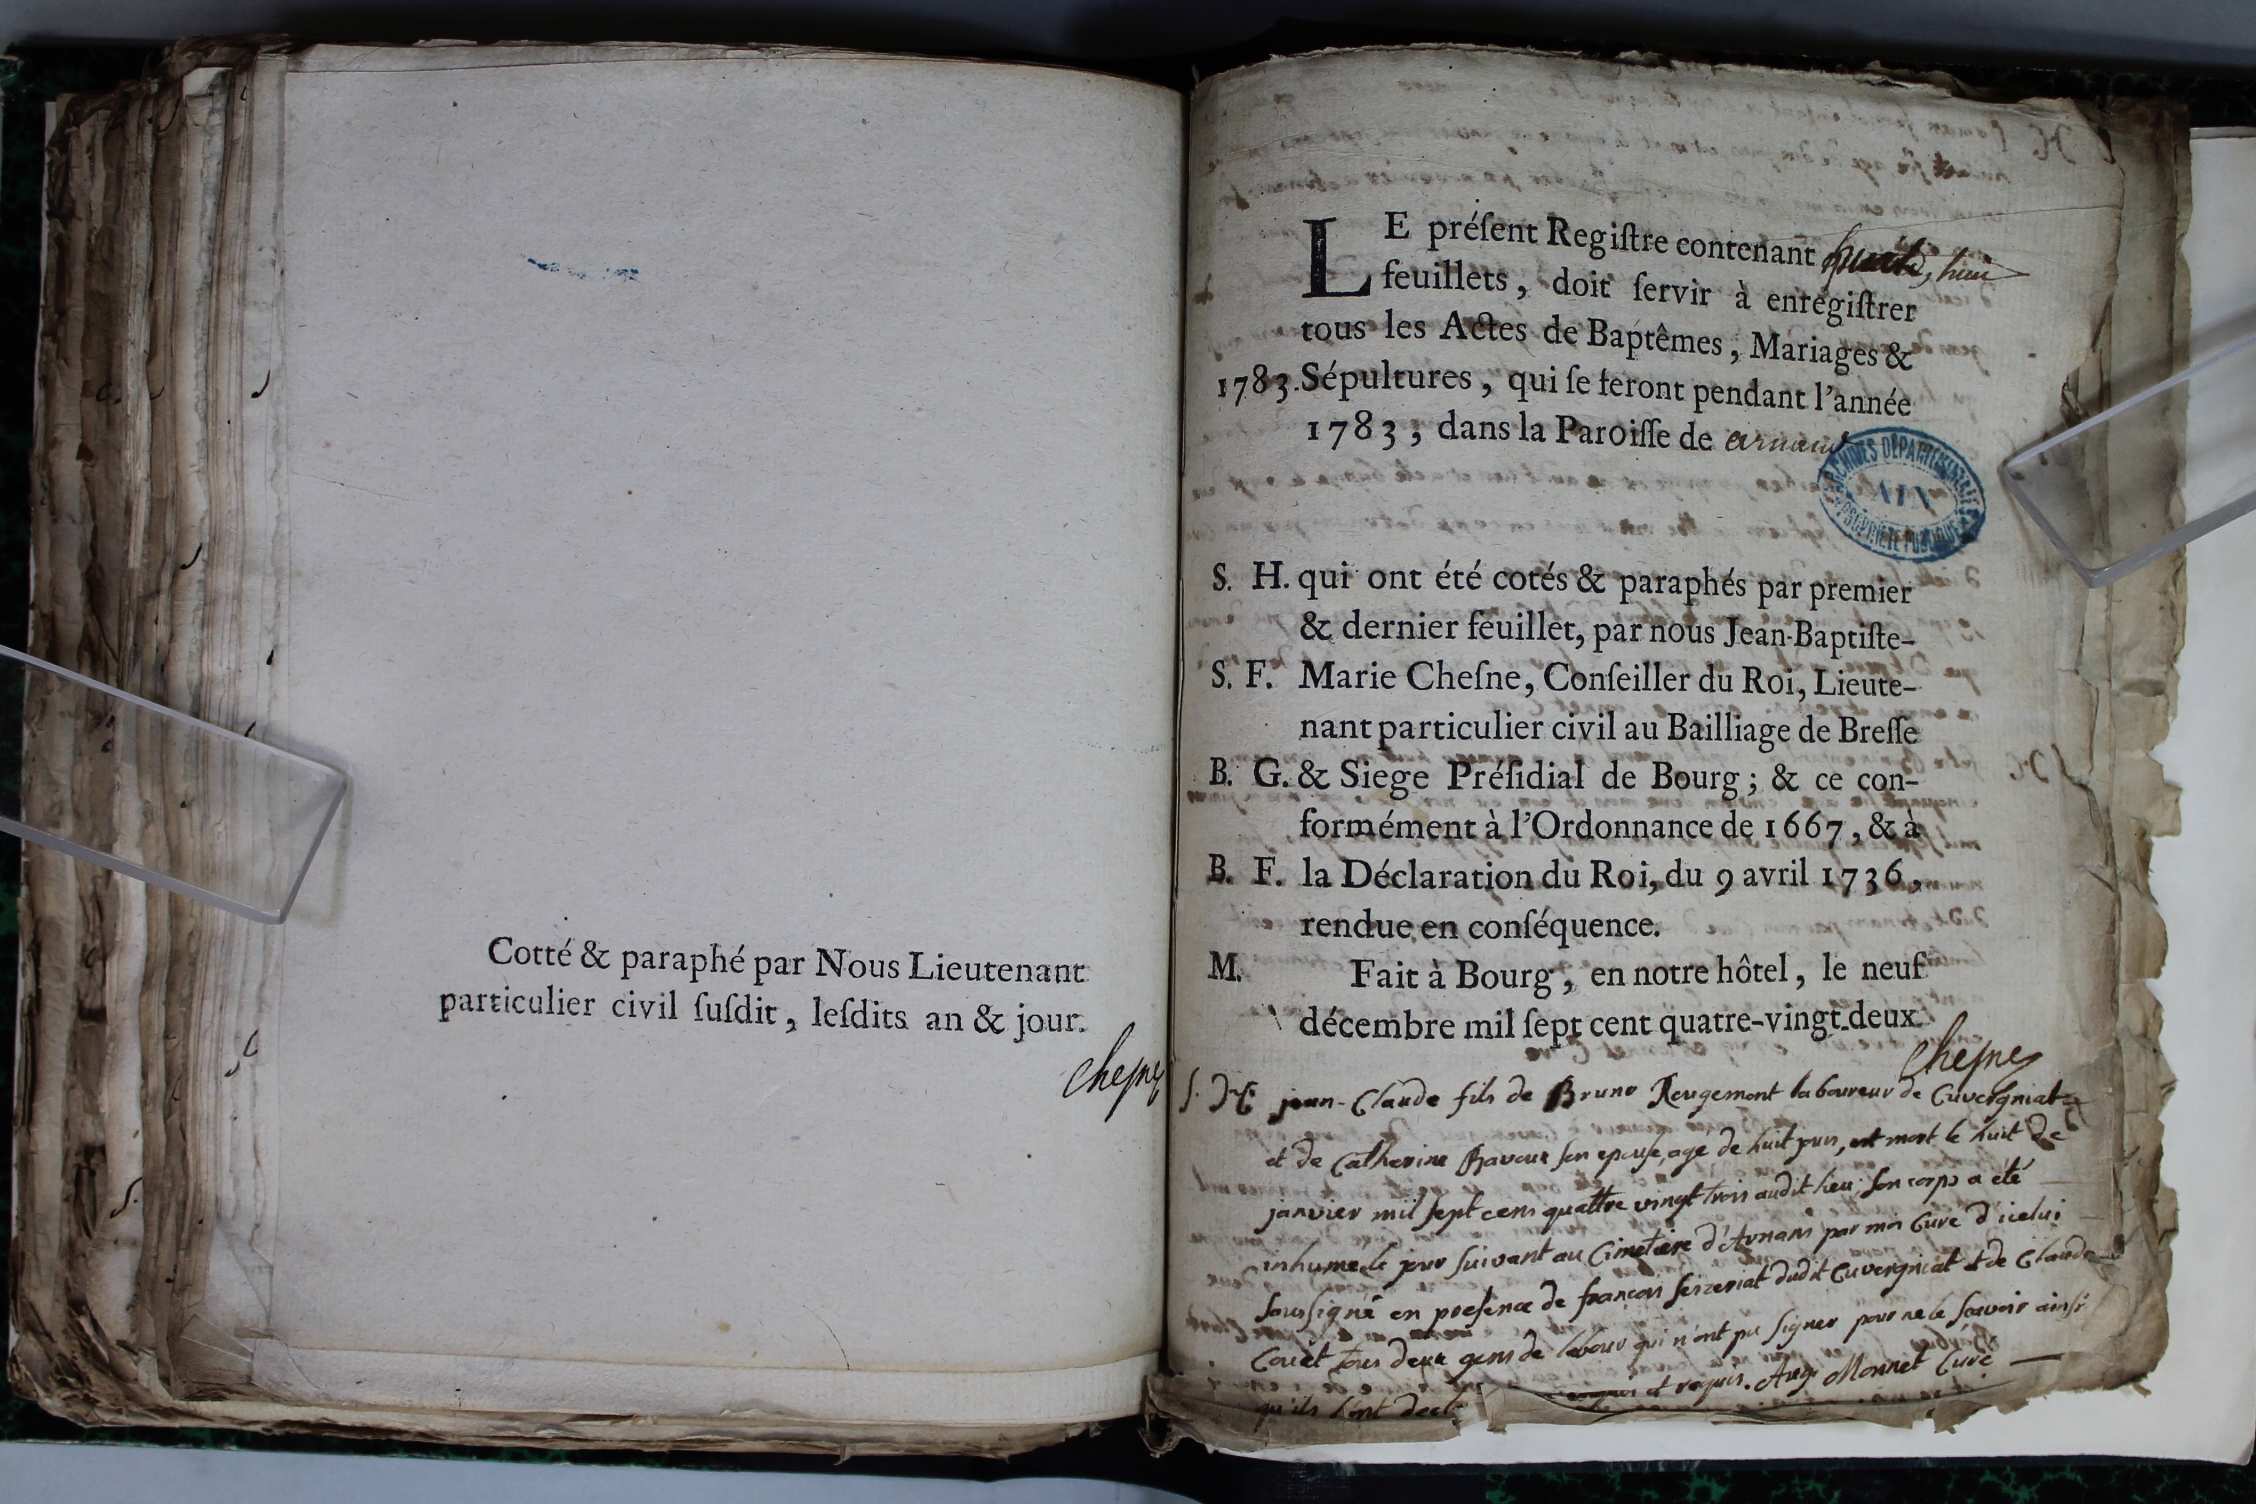 Cotté & paraphé par Nous Lieutenant
particulier civil ſuſdit, leſdits an & jour.
Cheſne
LE préſent Regiſtre contenant huit
feuillets, doit ſervir à enregiſtrer
tous les Actes de Baptêmes, Mariages &
1783. Sépultures, qui ſe feront pendant l'année
1783, dans la Paroiſſe de arnans
ARCHIVES DÉPARTEMENTALES
AIN
PROPRIÉTÉ PUBLIQUE
S. H. qui ont été cotés & paraphés par premier
& dernier feuillet, par nous Jean-Baptiſte-
S. F. Marie Cheſne, Conſeiller du Roi, Lieute-
nant particulier civil au Bailliage de Breſſe
B. G. & Siege Préſidial de Bourg; & ce con-
formément à l'Ordonnance de 1667, & à
B. F. la Déclaration du Roi, du 9 avril 1736,
rendue en conſéquence.
M. Fait à Bourg, en notre hôtel, le neuf
décembre mil ſept cent quatre-vingt-deux
Cheſne
S. H. jean-Claude fils de Bruno Rougemont laboureur de Cuvergniat
et de Catherine Ravoux son epouse, age de huit jours, est mort le huit de
janvier mil sept cens quattre vingt trois audit lieu, son corps a été
inhumé le jour suivant au Cimetiere d'Arnans par moi Curé d'icelui
soussigné en presence de françois seizeriat dudit Cuvergniat et de Claude
Couët tous deux gens de labour qui n'ont pu signer pour ne le sçavoir ainsi
qu'ils l'ont decl et requis. Aug. Monnet Curé